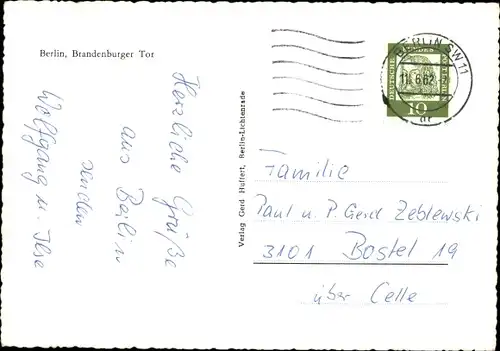 Berlin, Brandenburger Tor
Herzliche Grüße
aus Berlin
senden
Wolfgang u. Ilse
Verlag Gerd Huffert, Berlin-Lichtenrade
BERLIN SW 11
11.6.62
ar
10
Familie
Paul u. P. Gerd Zeblewski
3101 Bostel 19
über Celle